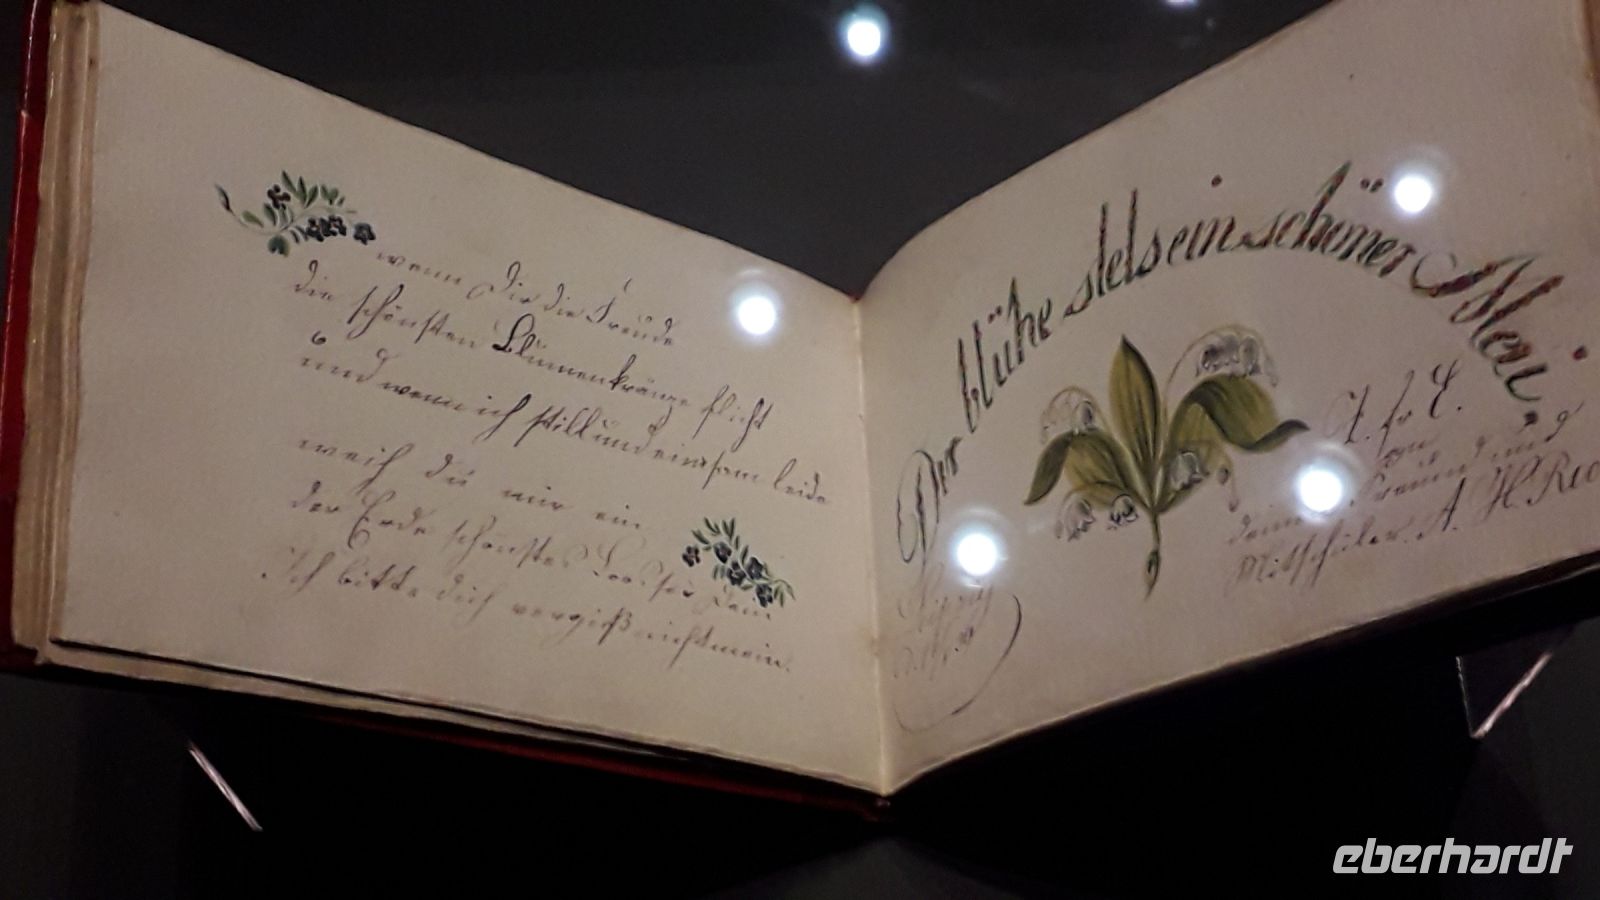 wenn Dir die Freude
die schönsten Blumenkränze flicht
und wenn ich still und einsam leide
weih du mir ein
der Erde schönstes Loos sei Dein
Ich bitte dich vergiß nicht mein.
Dir blühe stets ein schöner Mei.
Z. fr. E.
von
deinem Freund und
Mitschüler. A. H.
Leipzig
eberhardt